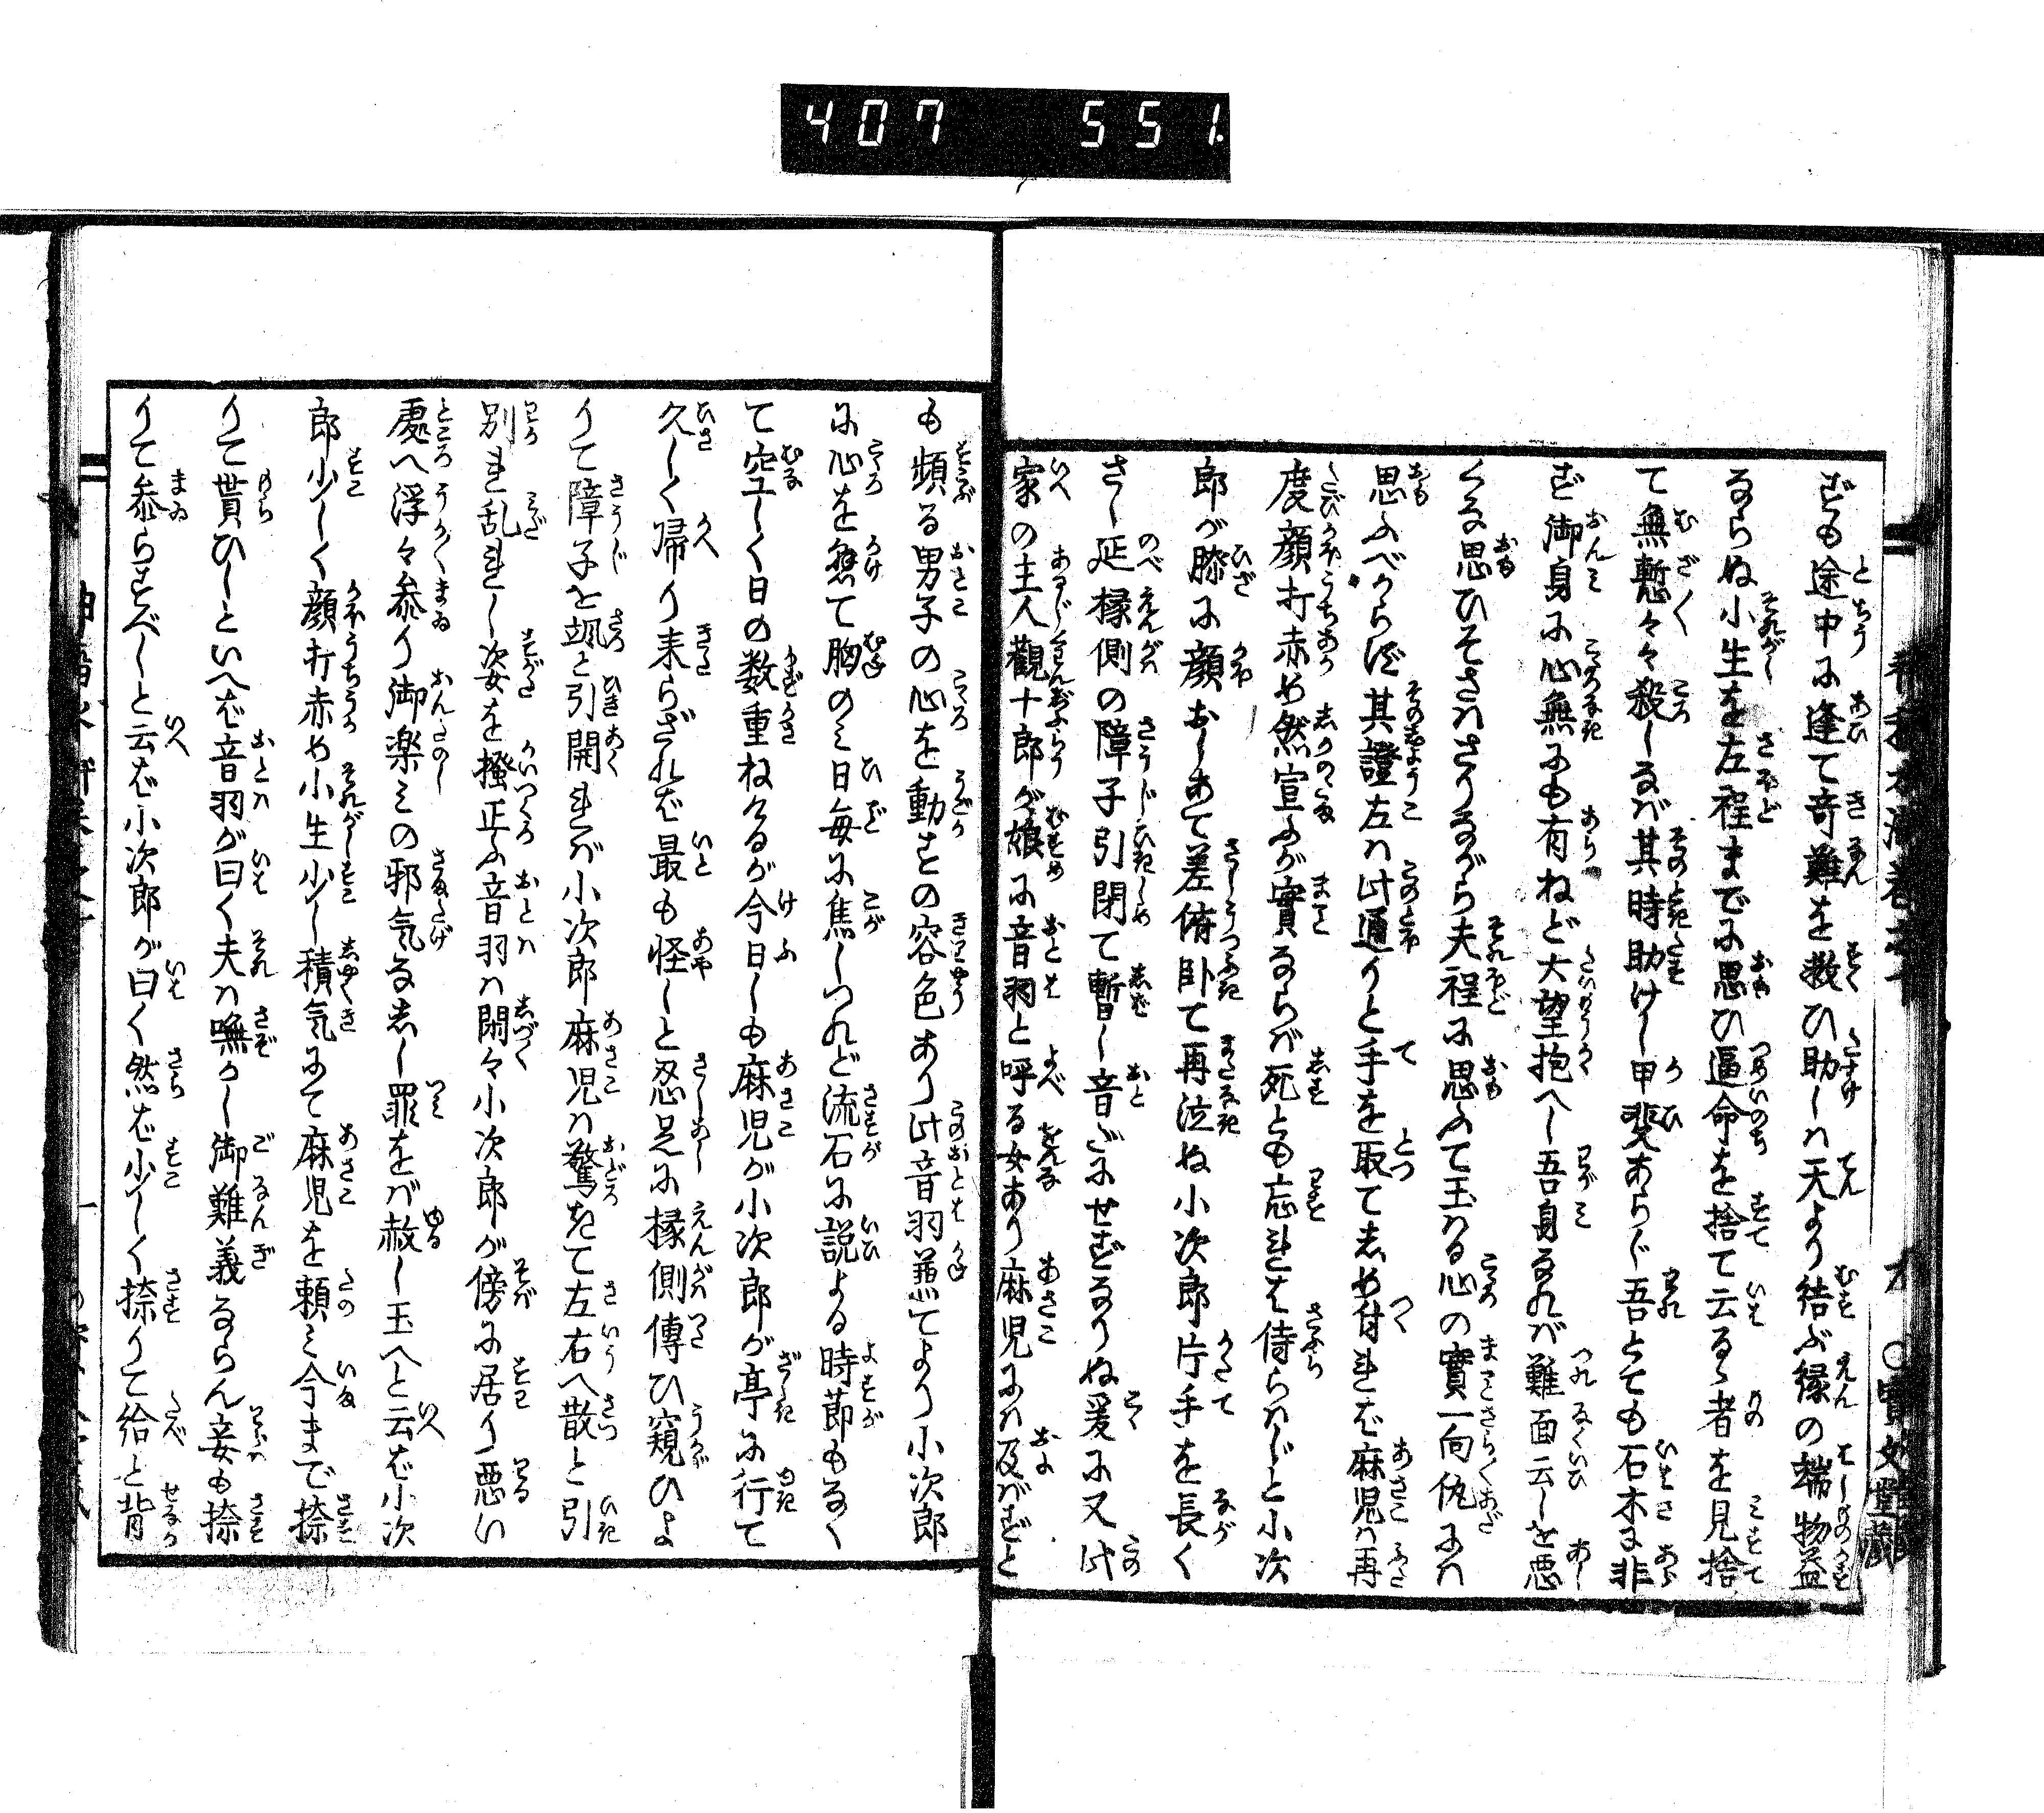 407 551.
ども途中に逢て奇難を救ひ助しハ天より結ぶ縁の端物益
ならぬ小生を左程までに思ひ逼命を捨て云るゝ者を見捨
て無慙々々殺しなバ其時助けし甲斐あらじ吾とても石木に非
ず御身に心無にも有ねど大望抱へし吾身なれバ難面云しを悪
くな思ひそさハさりながら夫程に思ふて玉ハる心の實一向仇にハ
思ふべからず其證左ハ此通りと手を取てしめ付れば麻児ハ再
度顔打赤め然宣ふが實ならバ死とも忘れは侍らハじと小次
郎が膝に顔おしあて差俯卧て再泣ぬ小次郎片手を長く
さし延縁側の障子引閉て暫し音だにせずなりぬ爰に又此
家の主人觀十郎が娘に音羽と呼る女あり麻児にハ及バずと
も頻る男子の心を動すの容色あり此音羽兼てより小次郎
に心を懸て胸のミ日毎に焦しつれど流石に説よる時節もなく
て空しく日の数重ねけるが今日しも麻児が小次郎が亭に行て
久しく帰り来らざれば最も怪しと忍足に縁側傳ひ窺ひよ
りて障子を颯と引開れバ小次郎麻児ハ驚きて左右へ散と引
別れ乱れし姿を掻正ふ音羽ハ閑々小次郎が傍に居り悪い
處へ浮々参り御楽ミの邪気なしゝ罪をバ赦し玉へと云ば小次
郎少しく顔打赤め小生少し積気にて麻児を頼ミ今まで捺
りて貰ひしといへば音羽が曰く夫ハ嘸かし御難義ならん妾も捺
りて参らすべしと云ば小次郎が曰く然ば少しく捺りて給と背